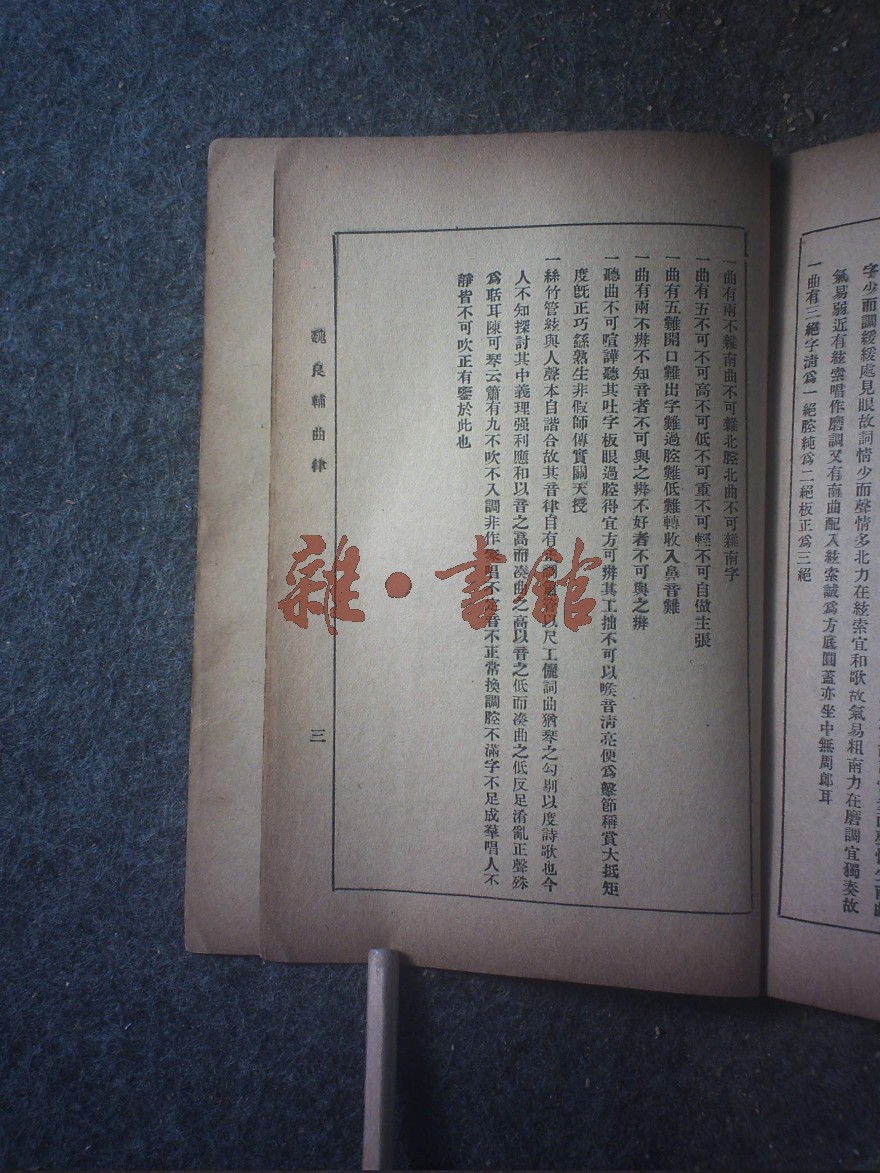 字少而調緩緩處見眼故詞情少而聲情多北力在絃索宜和歌故氣易粗南力在磨調宜獨奏故
氣易弱近有絃索唱作磨調又有南曲配入絃索誠為方底圓蓋亦坐中無周郎耳
一曲有三絕字清為一絕腔純為二絕板正為三絕
一曲有兩不雜南曲不可雜北腔北曲不可雜南字
一曲有五不可不可高不可低不可重不可輕不可自做主張
一曲有五難開口難出字難過腔難低難轉收入鼻音難
一曲有兩不辨不知音者不可與之辨不好者不可與之辨
一聽曲不可喧譁聽其吐字板眼過腔得宜方可辨其工拙不可以喉音清亮便為擊節稱賞大抵矩
度旣正巧繇熟生非假師傳實關天授
一絲竹管絃與人聲本自諧合故其音律自有正調以尺工儷詞曲猶琴之勾剔以度詩歌也今
人不知探討其中義理强利應和以音之高而凑曲之高以音之低而凑曲之低反足淆亂正聲殊
為聒耳陳可琴云簫有九不吹不入調非作家唱不定音不正常換調腔不滿字不足成羣唱人不
靜皆不可吹正有鑒於此也
魏良輔曲律
三
雜·書館